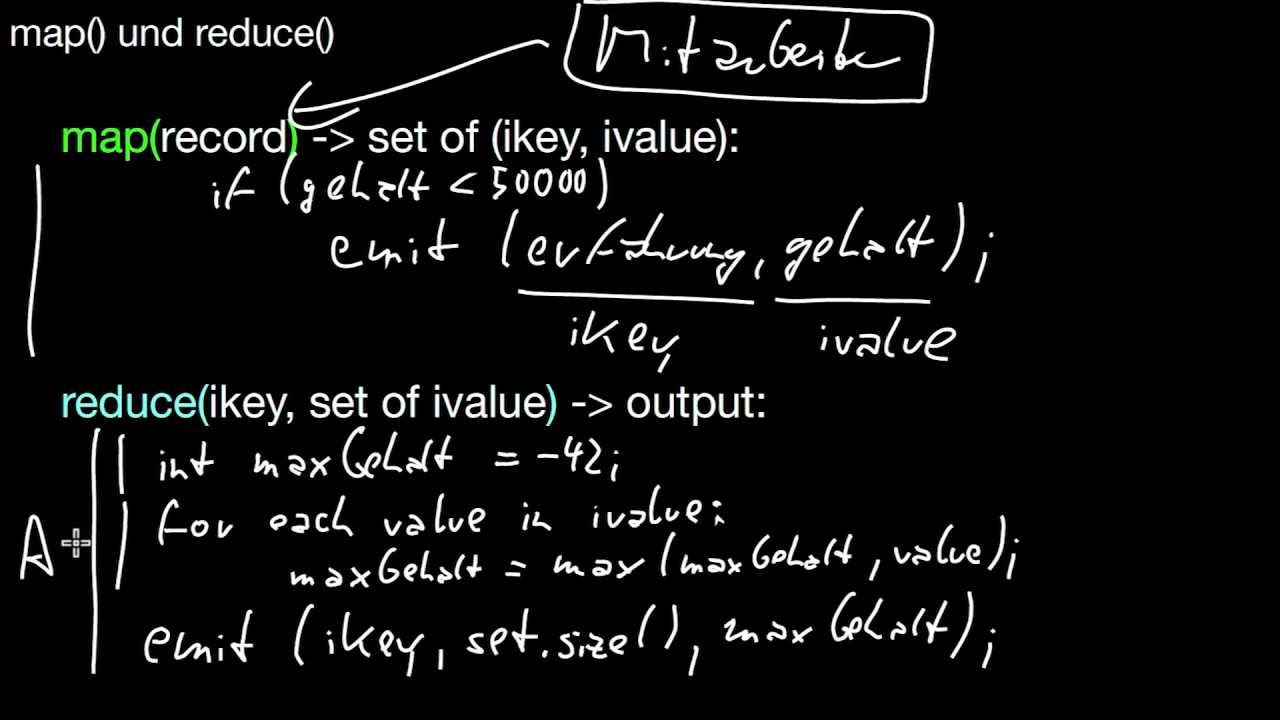 map() und reduce()
Mitarbeiter
map(record) -> set of (ikey, ivalue):
if (gehalt < 50000)
emit (erfahrung, gehalt);
ikey ivalue
reduce(ikey, set of ivalue) -> output:
int maxGehalt = -42;
for each value in ivalue:
maxGehalt = max(maxGehalt, value);
A
emit (ikey, set.size(), maxGehalt);